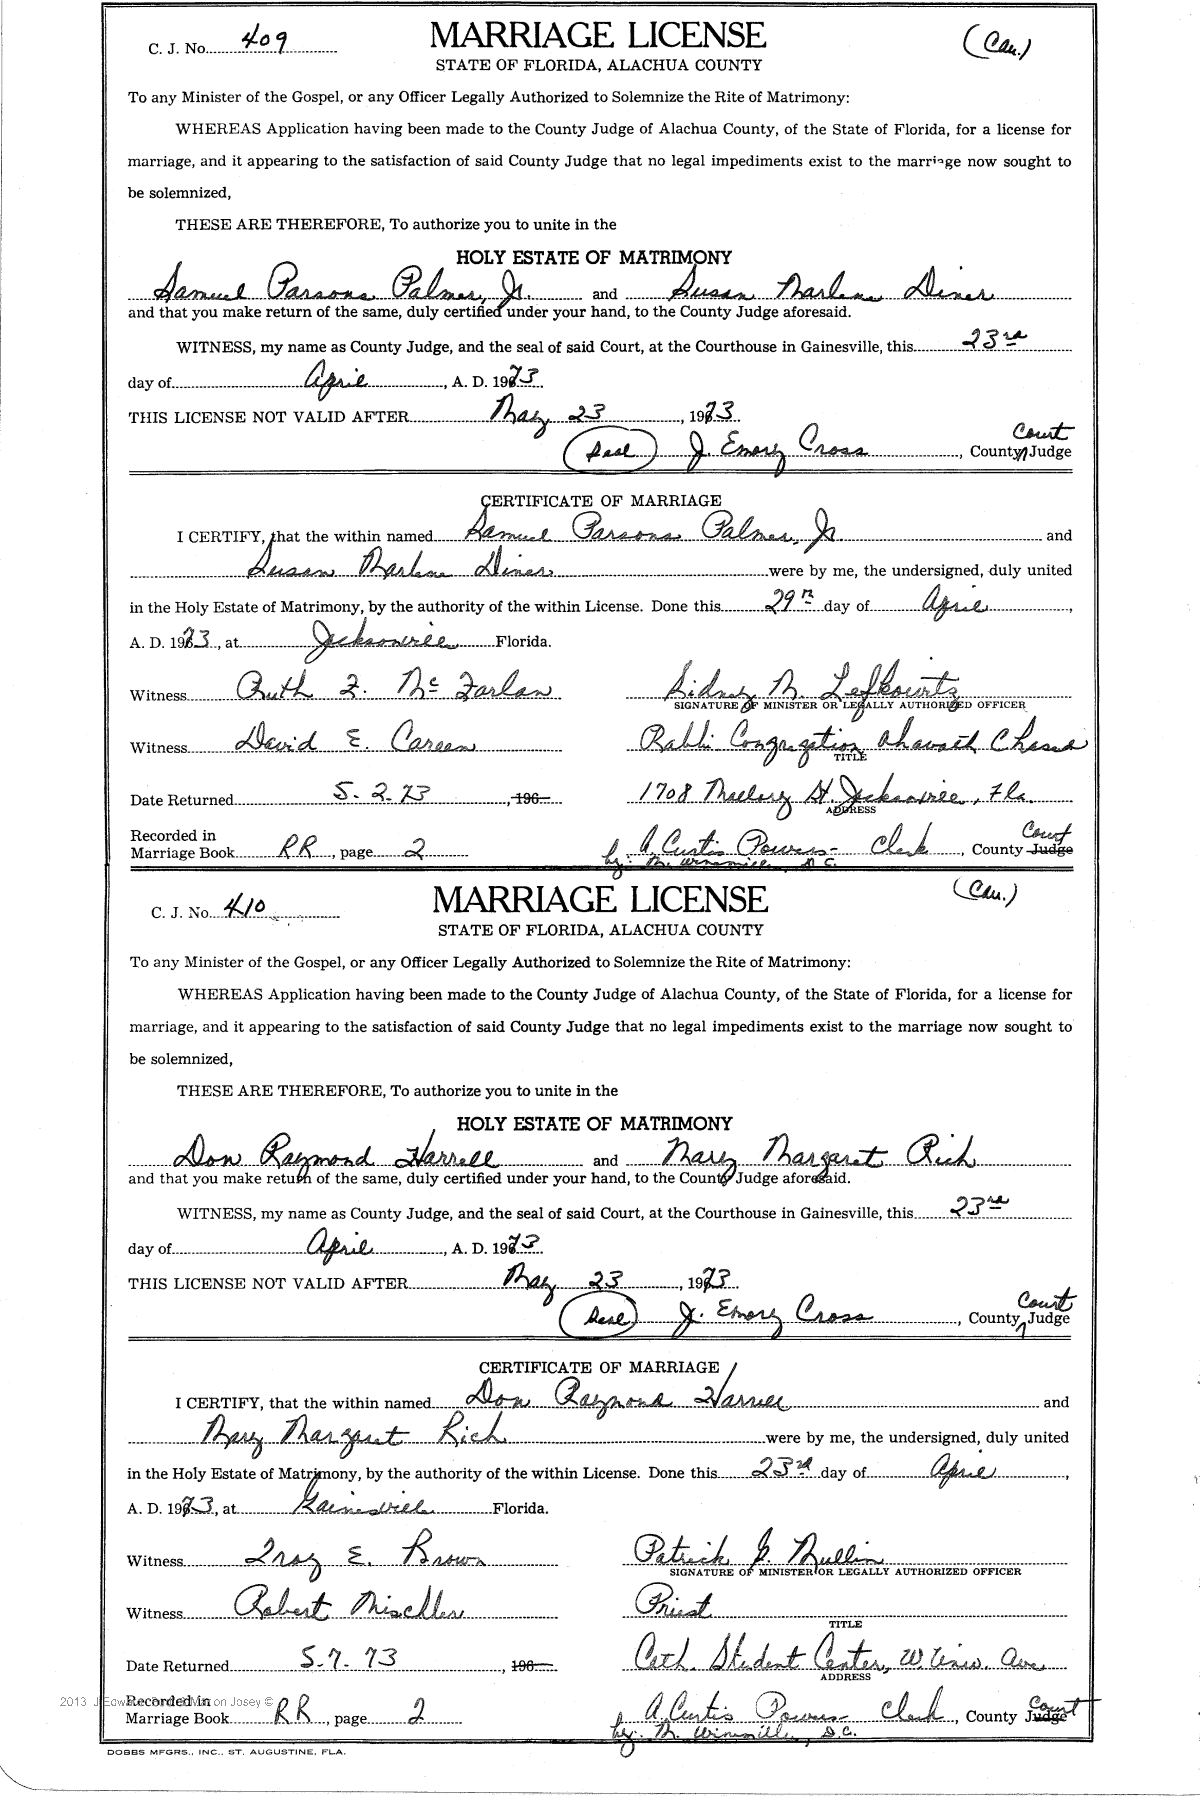 C. J. No. 409
MARRIAGE LICENSE
(Cau.)
STATE OF FLORIDA, ALACHUA COUNTY
To any Minister of the Gospel, or any Officer Legally Authorized to Solemnize the Rite of Matrimony:
WHEREAS Application having been made to the County Judge of Alachua County, of the State of Florida, for a license for
marriage, and it appearing to the satisfaction of said County Judge that no legal impediments exist to the marriage now sought to
be solemnized,
THESE ARE THEREFORE, To authorize you to unite in the
HOLY ESTATE OF MATRIMONY
Samuel Parsons Palmer, Jr. and Susan Marlene Diner
and that you make return of the same, duly certified under your hand, to the County Judge aforesaid.
WITNESS, my name as County Judge, and the seal of said Court, at the Courthouse in Gainesville, this 23rd
day of April, A. D. 1973
THIS LICENSE NOT VALID AFTER May 23, 1973
Court
(Seal) J. Emory Cross, County Judge
CERTIFICATE OF MARRIAGE
I CERTIFY, that the within named Samuel Parsons Palmer, Jr. and
Susan Marlene Diner were by me, the undersigned, duly united
in the Holy Estate of Matrimony, by the authority of the within License. Done this 29th day of April,
A. D. 1973, at Jacksonville Florida.
Witness Ruth F. McFarlan Sidney M. Lefkowitz
SIGNATURE OF MINISTER OR LEGALLY AUTHORIZED OFFICER
Witness David E. Careen Rabbi Congregation Ahavath Chesed
TITLE
Date Returned 5-2-73, 196 1708 Mallory St. Jacksonville, Fla.
ADDRESS
Recorded in Court
Marriage Book RR, page 2 A. Curtis Powers - Clerk, County Judge
by: M. Winsmill, D.C.
C. J. No. 410
MARRIAGE LICENSE
(Cau.)
STATE OF FLORIDA, ALACHUA COUNTY
To any Minister of the Gospel, or any Officer Legally Authorized to Solemnize the Rite of Matrimony:
WHEREAS Application having been made to the County Judge of Alachua County, of the State of Florida, for a license for
marriage, and it appearing to the satisfaction of said County Judge that no legal impediments exist to the marriage now sought to
be solemnized,
THESE ARE THEREFORE, To authorize you to unite in the
HOLY ESTATE OF MATRIMONY
Don Raymond Harrell and Mary Margaret Rich
and that you make return of the same, duly certified under your hand, to the County Judge aforesaid.
WITNESS, my name as County Judge, and the seal of said Court, at the Courthouse in Gainesville, this 23rd
day of April, A. D. 1973
THIS LICENSE NOT VALID AFTER May 23, 1973
Court
(Seal) J. Emory Cross, County Judge
CERTIFICATE OF MARRIAGE
I CERTIFY, that the within named Don Raymond Harrell and
Mary Margaret Rich were by me, the undersigned, duly united
in the Holy Estate of Matrimony, by the authority of the within License. Done this 23rd day of April,
A. D. 1973, at Gainesville Florida.
Witness Troy E. Brown Patrick J. Mullin
SIGNATURE OF MINISTER OR LEGALLY AUTHORIZED OFFICER
Witness Robert Mischler Priest
TITLE
Date Returned 5-7-73, 196 Cath. Student Center, W. Univ. Ave
ADDRESS
Recorded in Court
Marriage Book RR, page 2 A. Curtis Powers Clerk, County Judge
by: M. Winsmill, D.C.
DOBBS MFGRS., INC., ST. AUGUSTINE, FLA.